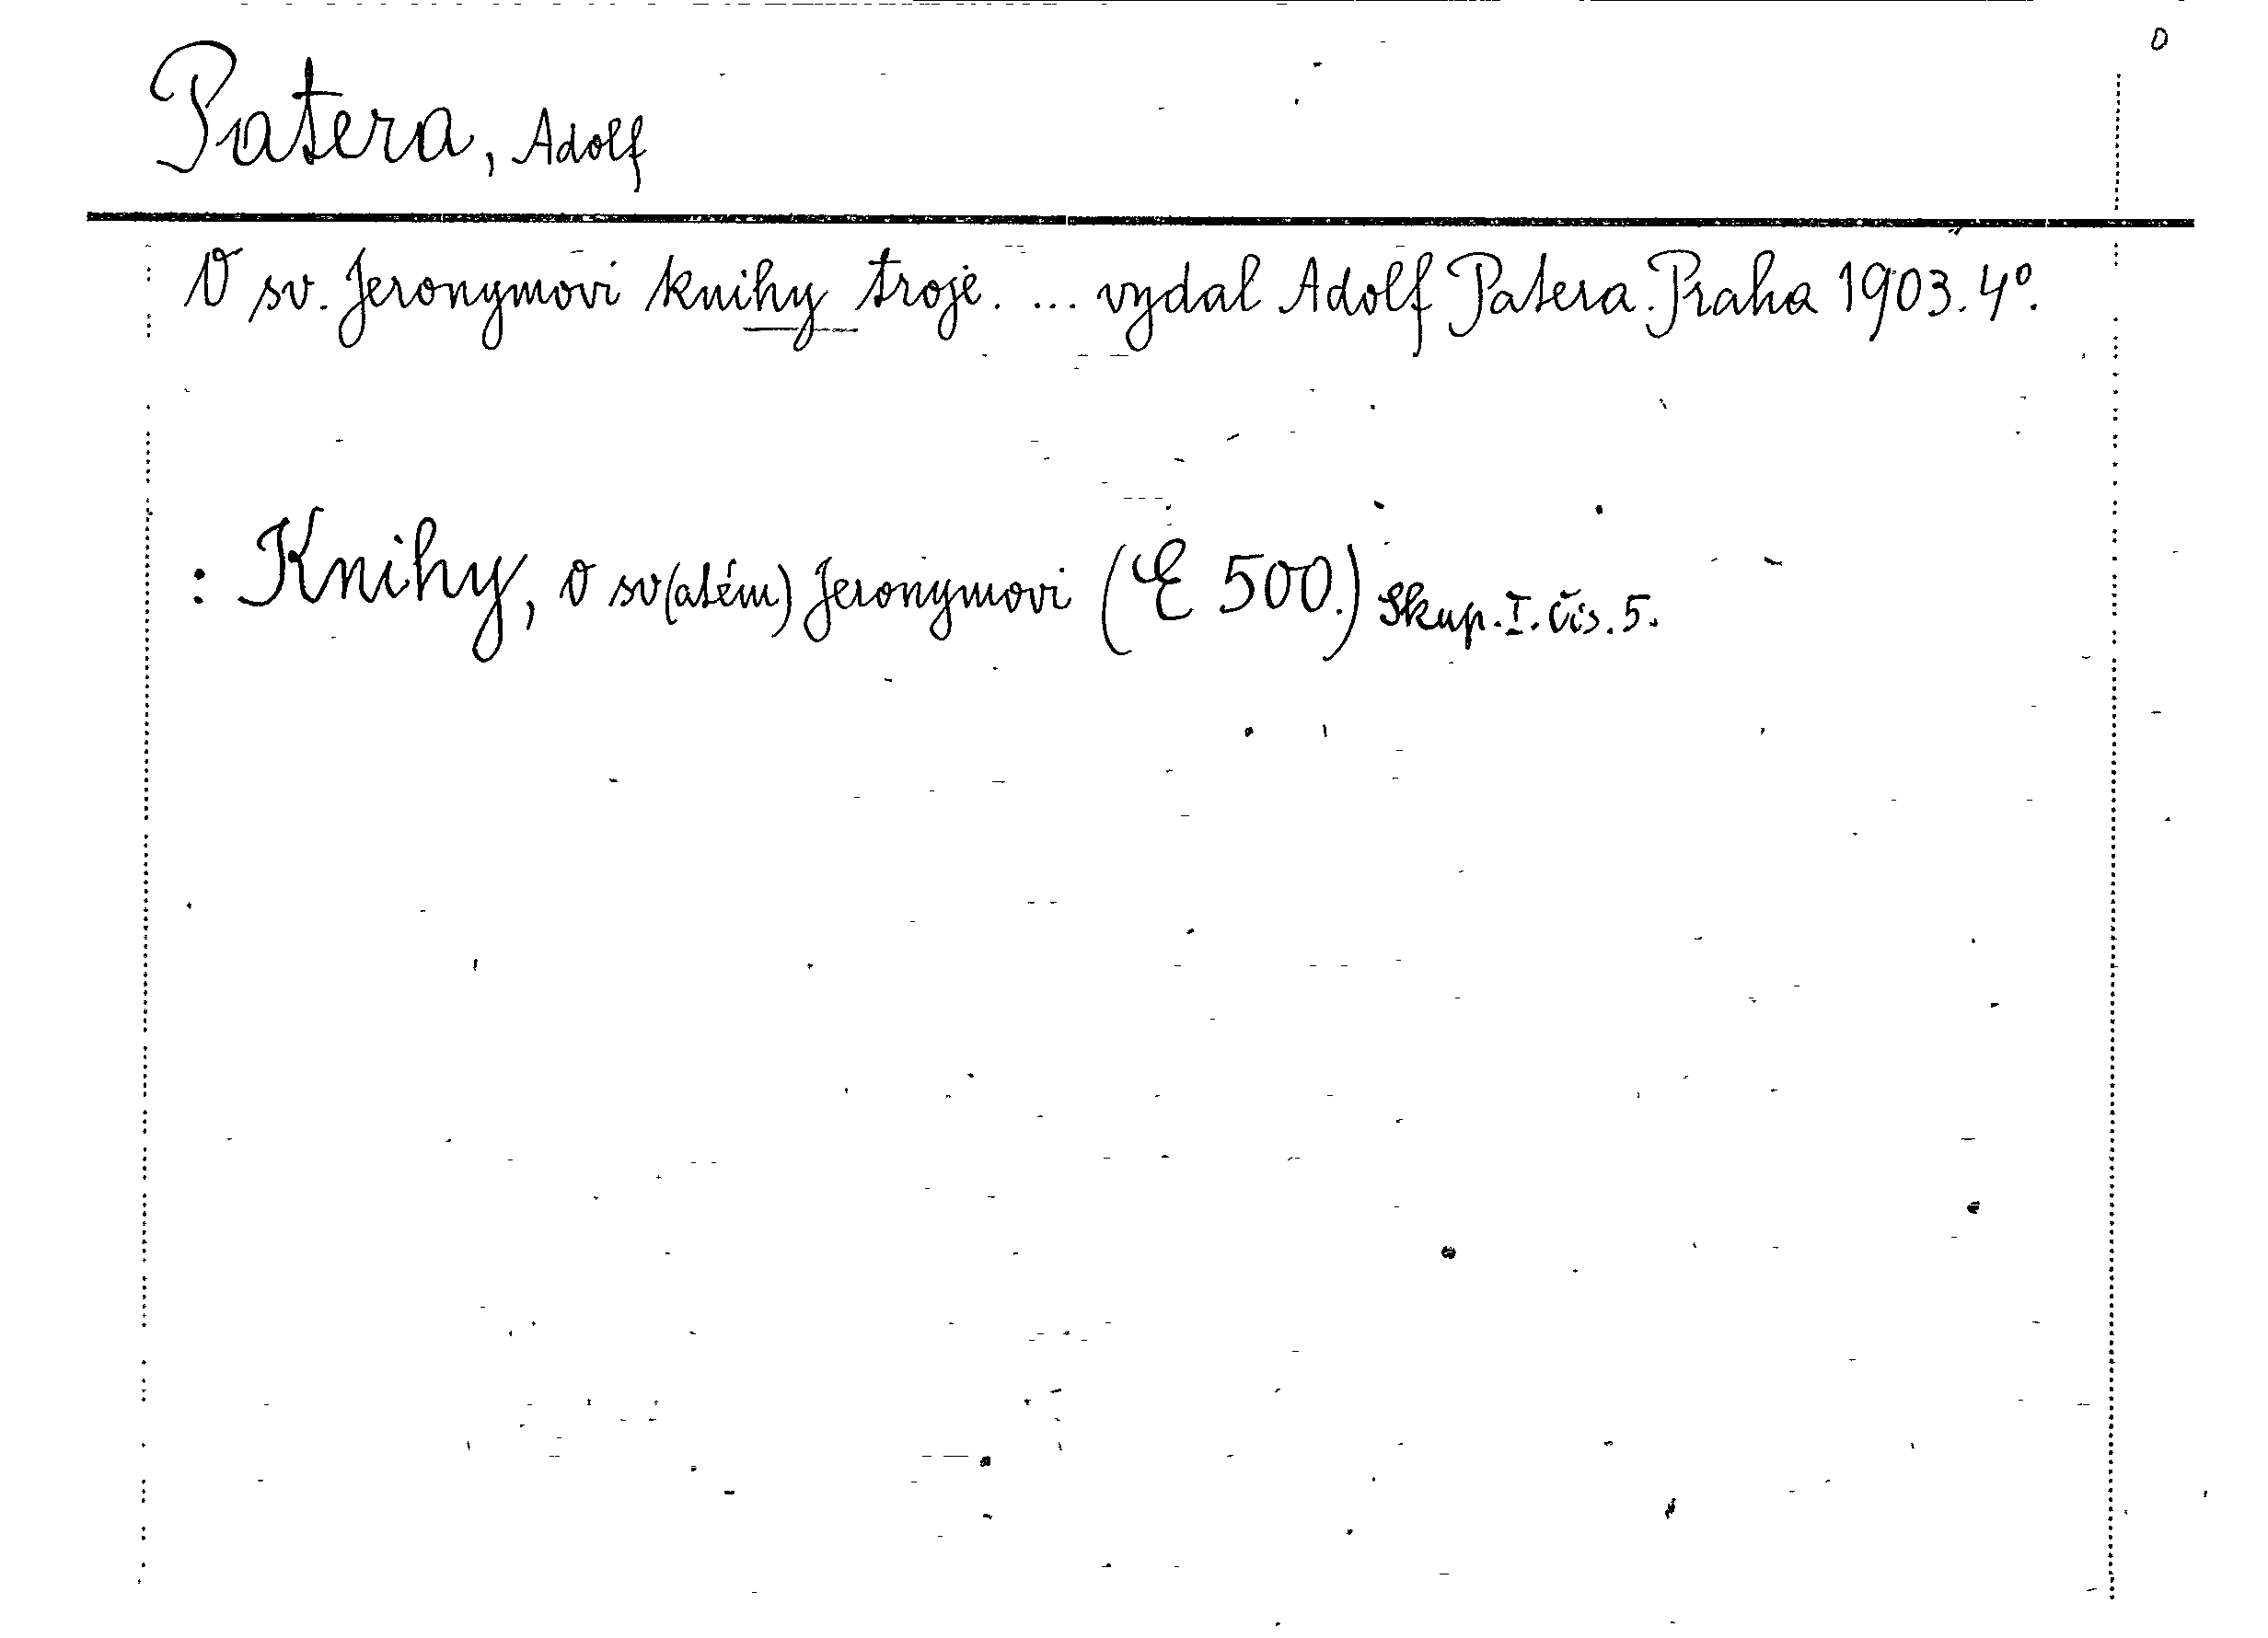 Patera, Adolf
O sv. Jeronymovi knihy troje. ... vydal Adolf Patera. Praha 1903. 4°.
: Knihy, o sv(atém) Jeronymovi (E 500.) Skup. I. čís. 5.